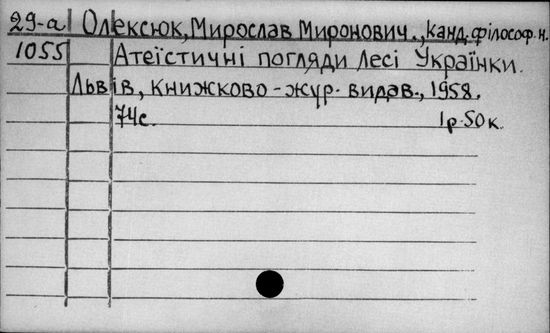 29-а Олексюк, Мирослав Миронович., канд. філософ. н.
1055 Атеїстичні погляди Лесі Українки.
Львів, Книжково-жур. видав., 1958.
74с. 1р.50к.